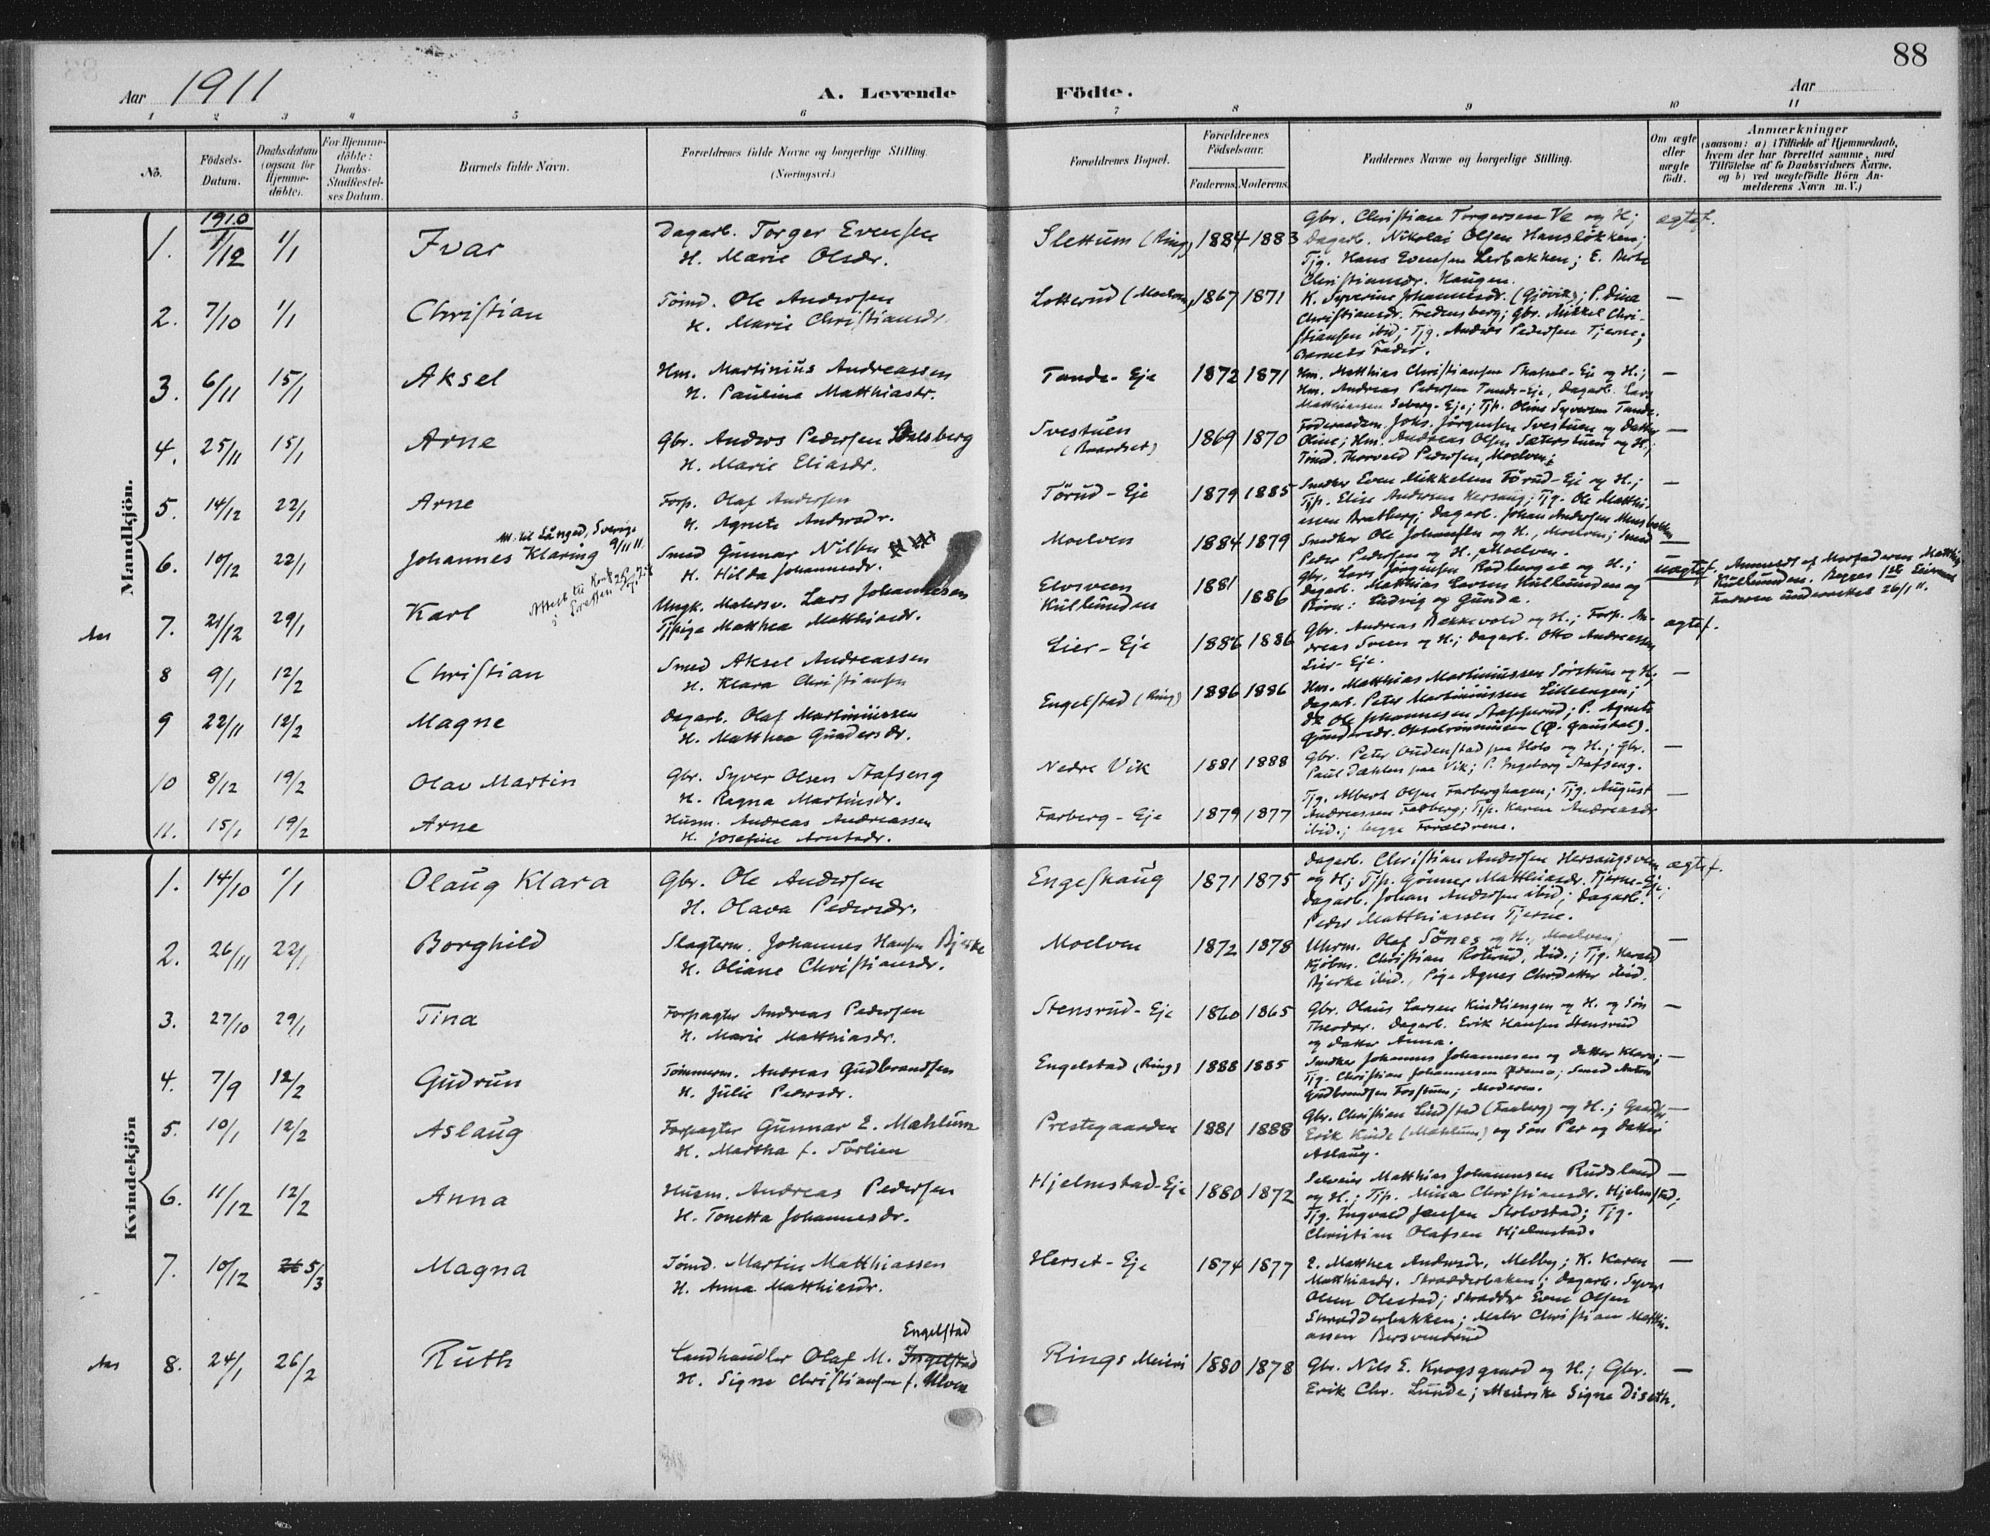 88
Aar 1911
A. Levende
Födte.
Aar
1 2 3 4 5 6 7 8 9 10 11
No.
Födsels-
Datum.
Daabsdatum
(ogsaa for
Hjemme-
döbte).
For Hjemme-
döbte:
Daabs-
Stadfæstel-
ses Datum.
Barnets fulde Navn.
Forældrenes fulde Navne og borgerlige Stilling.
(Næringsvei.)
Forældrenes Bopæl.
Forældrenes
Födselsaar.
Faderens. Moderens.
Faddernes Navne og borgerlige Stilling.
Om ægte
eller
uægte
födt.
Anmærkninger
(saasom: a) i Tilfælde af Hjemmedaab,
hvem der har forrettet samme, med
Tilföielse af to Daabsvidners Navne,
og b) ved uægtefödte Börn An-
melderens Navn m. V.)
Mandkjön.
1910
1. 1/12 1/1 Ivar
Dagarb. Torger Evensen
H. Marie Olsdr.
Slettum (Ring) 1884 1883
Gbr. Christian Torgersen Ve og H;
Dagarb. Nikolai Olsen Hanslökken;
Tjg. Hans Evensen Lerbakken; E. Berte
Christiansdr. Haugen.
ægtef.
2. 7/10 1/1 Christian
Tömd. Ole Andersen
H. Marie Christiansdr.
Lotterud (Moelven) 1867 1871
K. Syverine Johannesdr. (Gjövik); P. Dina
Christiansdr. Fredensberg; Gbr. Mikkel Chri-
stiansen ibid; Tjg. Anders Pedersen Tjerne;
Barnets Fader.
—
3. 6/11 15/1 Aksel
Hm. Martinius Andreassen
H. Pauline Matthiasdr.
Tande-Eje 1872 1871
Hm. Matthias Christiansen Eje og H.;
Hm. Andreas Pedersen Tande-Eje, Dagarb. Lars
Matthiassen Seberg-Eje; Tjp. Oline Syversen Tande.
—
4. 25/11 15/1 Arne
Gbr. Anders Pedersen
H. Marie Eliasdr.
Svestuen
(Baardset)
1869 1870
Föderaadsm. Johs. Jörgensen Svestuen og Datter
Oline; Hm. Andreas Olsen Sæterstuen og H.;
Tömd. Thorvald Pedersen, Moelven;
—
5. 14/12 22/1 Arne
Forp. Olaf Andersen
H. Agnete Andersdr.
Törud-Eje 1879 1885
Snedker Even Mikkelsen Törud-Eje og H.;
Tjp. Elise Andersen Hersaug; Tjg. Ole Matthi-
assen Bratberg; Dagarb. Johan Andersen
—
Att. til Långed, Sverige
9/11 11.
6. 10/12 22/1 Johannes Klaring
Smed Gunnar Nilsen
H. Hilda Johannesdr.
Moelven 1884 1879
Snedker Ole Johansen og H., Moelven; Smed
Peder Pedersen og H., Moelven.
—
Attest til Konf.
7. 21/12 29/1 Karl
Ungk. Malersv. Lars Johannesen
Tjpige Matthea Matthiasdr.
Elvsveen
Kullunden
1881 1886
Gbr. Lars Jörgensen Rudberget og H.;
Dagarb. Matthias Larsen Kullunden og
Börn: Ludvig og Gunda.
uægtef.
Anmeldt af Morfaderen Matthias
Kullunden. Begges 1ste
Faderen underrettet 26/1 11.
8 9/1 12/2 Christian
Smed Aksel Andreassen
H. Klara Christiansen
Lier-Eje 1886 1886
Gbr. Andreas Bækkevold og H.; Forp. An-
dreas Sveen og H.; Dagarb. Otto Andreassen
Lier-Eje.
ægtef.
9 22/11 12/2 Magne
Dagarb. Olaf Martiniussen
H. Matthea Gundersdr.
Engelstad (Ring) 1886 1886
Hm. Matthias Martiniussen Sörstuen og H.;
Dagarb. Peter Martiniussen Lilleengen;
Ole Johannesen Staffsrud; P. Agnete
Gundersdr. (Ø. Gausdal).
—
10 8/12 19/2 Olav Martin
Gbr. Syver Olsen Stafseng
H. Ragna Martinsdr.
Nedre Vik 1881 1888
Gbr. Peter Oudenstad paa Hols og H.; Gbr.
Paul Dæhlen paa Vik; P. Ingeborg Stafseng.
—
11. 15/1 19/2 Arne
Husm. Andreas Andreassen
H. Josefine Arntsdr.
Farberg-Eje 1879 1877
Tjg. Albert Olsen Farberghagen; Tjg. August
Andreassen Farberg; Tjp. Karen Andreasdr
ibid.; begge Forældrene.
—
Kvindekjön
1. 14/10 1/1 Olaug Klara
Gbr. Ole Andersen
H. Olava Pedersdr.
Engeshaug 1871 1875
Dagarb. Christian Andersen Hersaugsveen
og H; Tjp. Gönner Matthiasdr. Tjerne-Eje;
Dagarb. Johan Andersen ibid; Dagarb.
Peder Matthiassen Tjerne.
ægtef.
2. 26/11 22/1 Borghild
Slagterm. Johannes Hansen Bjerke
H. Oliane Christiansdr.
Moelven 1872 1878
Uhrm. Olaf Sönes og H., Moelven;
Kjöbm. Christian Roterud, ibid.; Tjg. Harald
Bjerke ibid., Pige Agnes ibid.
—
3. 27/10 29/1 Tina
Forpagter Andreas Pedersen
H. Marie Matthiasdr.
Stensrud-Eje 1860 1865
Gbr. Olaus Larsen Kindliengen og H. og Sön
Theodor. Dagarb. Erik Hansen Stensrud
og Datter Anna.
—
4. 7/9 12/2 Gudrun
Tömmerm. Andreas Gudbrandsen
H. Julie Pedersdr.
Engelstad (Ring) 1888 1885
Snedker Johannes Johannesen og Datter Klara;
Tjg. Christian Johannesen Ødemo; Smed Anton
Gudbrandsen Fosstuen; Moderen.
—
5. 10/1 12/2 Aslaug
Forpagter Gunnar E. Mæhlum
H. Martha f. Sörlien
Prestegaarden 1881 1888
Gbr. Christian Lindstad (Faaberg) og H.; Gaardbr
Erik Kinde (Mæhlum) og Sön Per og Datter
Aslaug.
—
6. 11/12 12/2 Anna
Husm. Andreas Pedersen
H. Tonetta Johannesdr.
Hjelmstad-Eje 1880 1872
Selveier Matthias Johannesen Rudsland
og H.; Tjp. Mina Christiansdr. Hjelmstad;
Tjg. Ingvald Jensen Skolvstad; Tjg.
Christian Olafsen Hjelmstad.
—
7. 10/12 26 5/3 Magna
Tömd. Martin Matthiassen
H. Anna Matthiasdr.
Herset-Eje 1874 1877
E. Matthea Andersdr. Melby; K. Karen
Matthiasdr. Skrædderbakken; Dagarb. Syver
Olsen Olestad; Skrædder Even Olsen
Skrædderbakken; Maler Christian Matthi-
assen Bersvendrud
—
8. 24/1 26/2 Ruth
Engelstad
Landhandler Olaf M. Ingelstad
H. Signe Christiansen f. Ulven
Rings Meieri 1880 1878
Gbr. Nils E. Krogsgaard og H.; Gbr.
Erik Chr. Lunde; Meierske Signe Diseth.
—